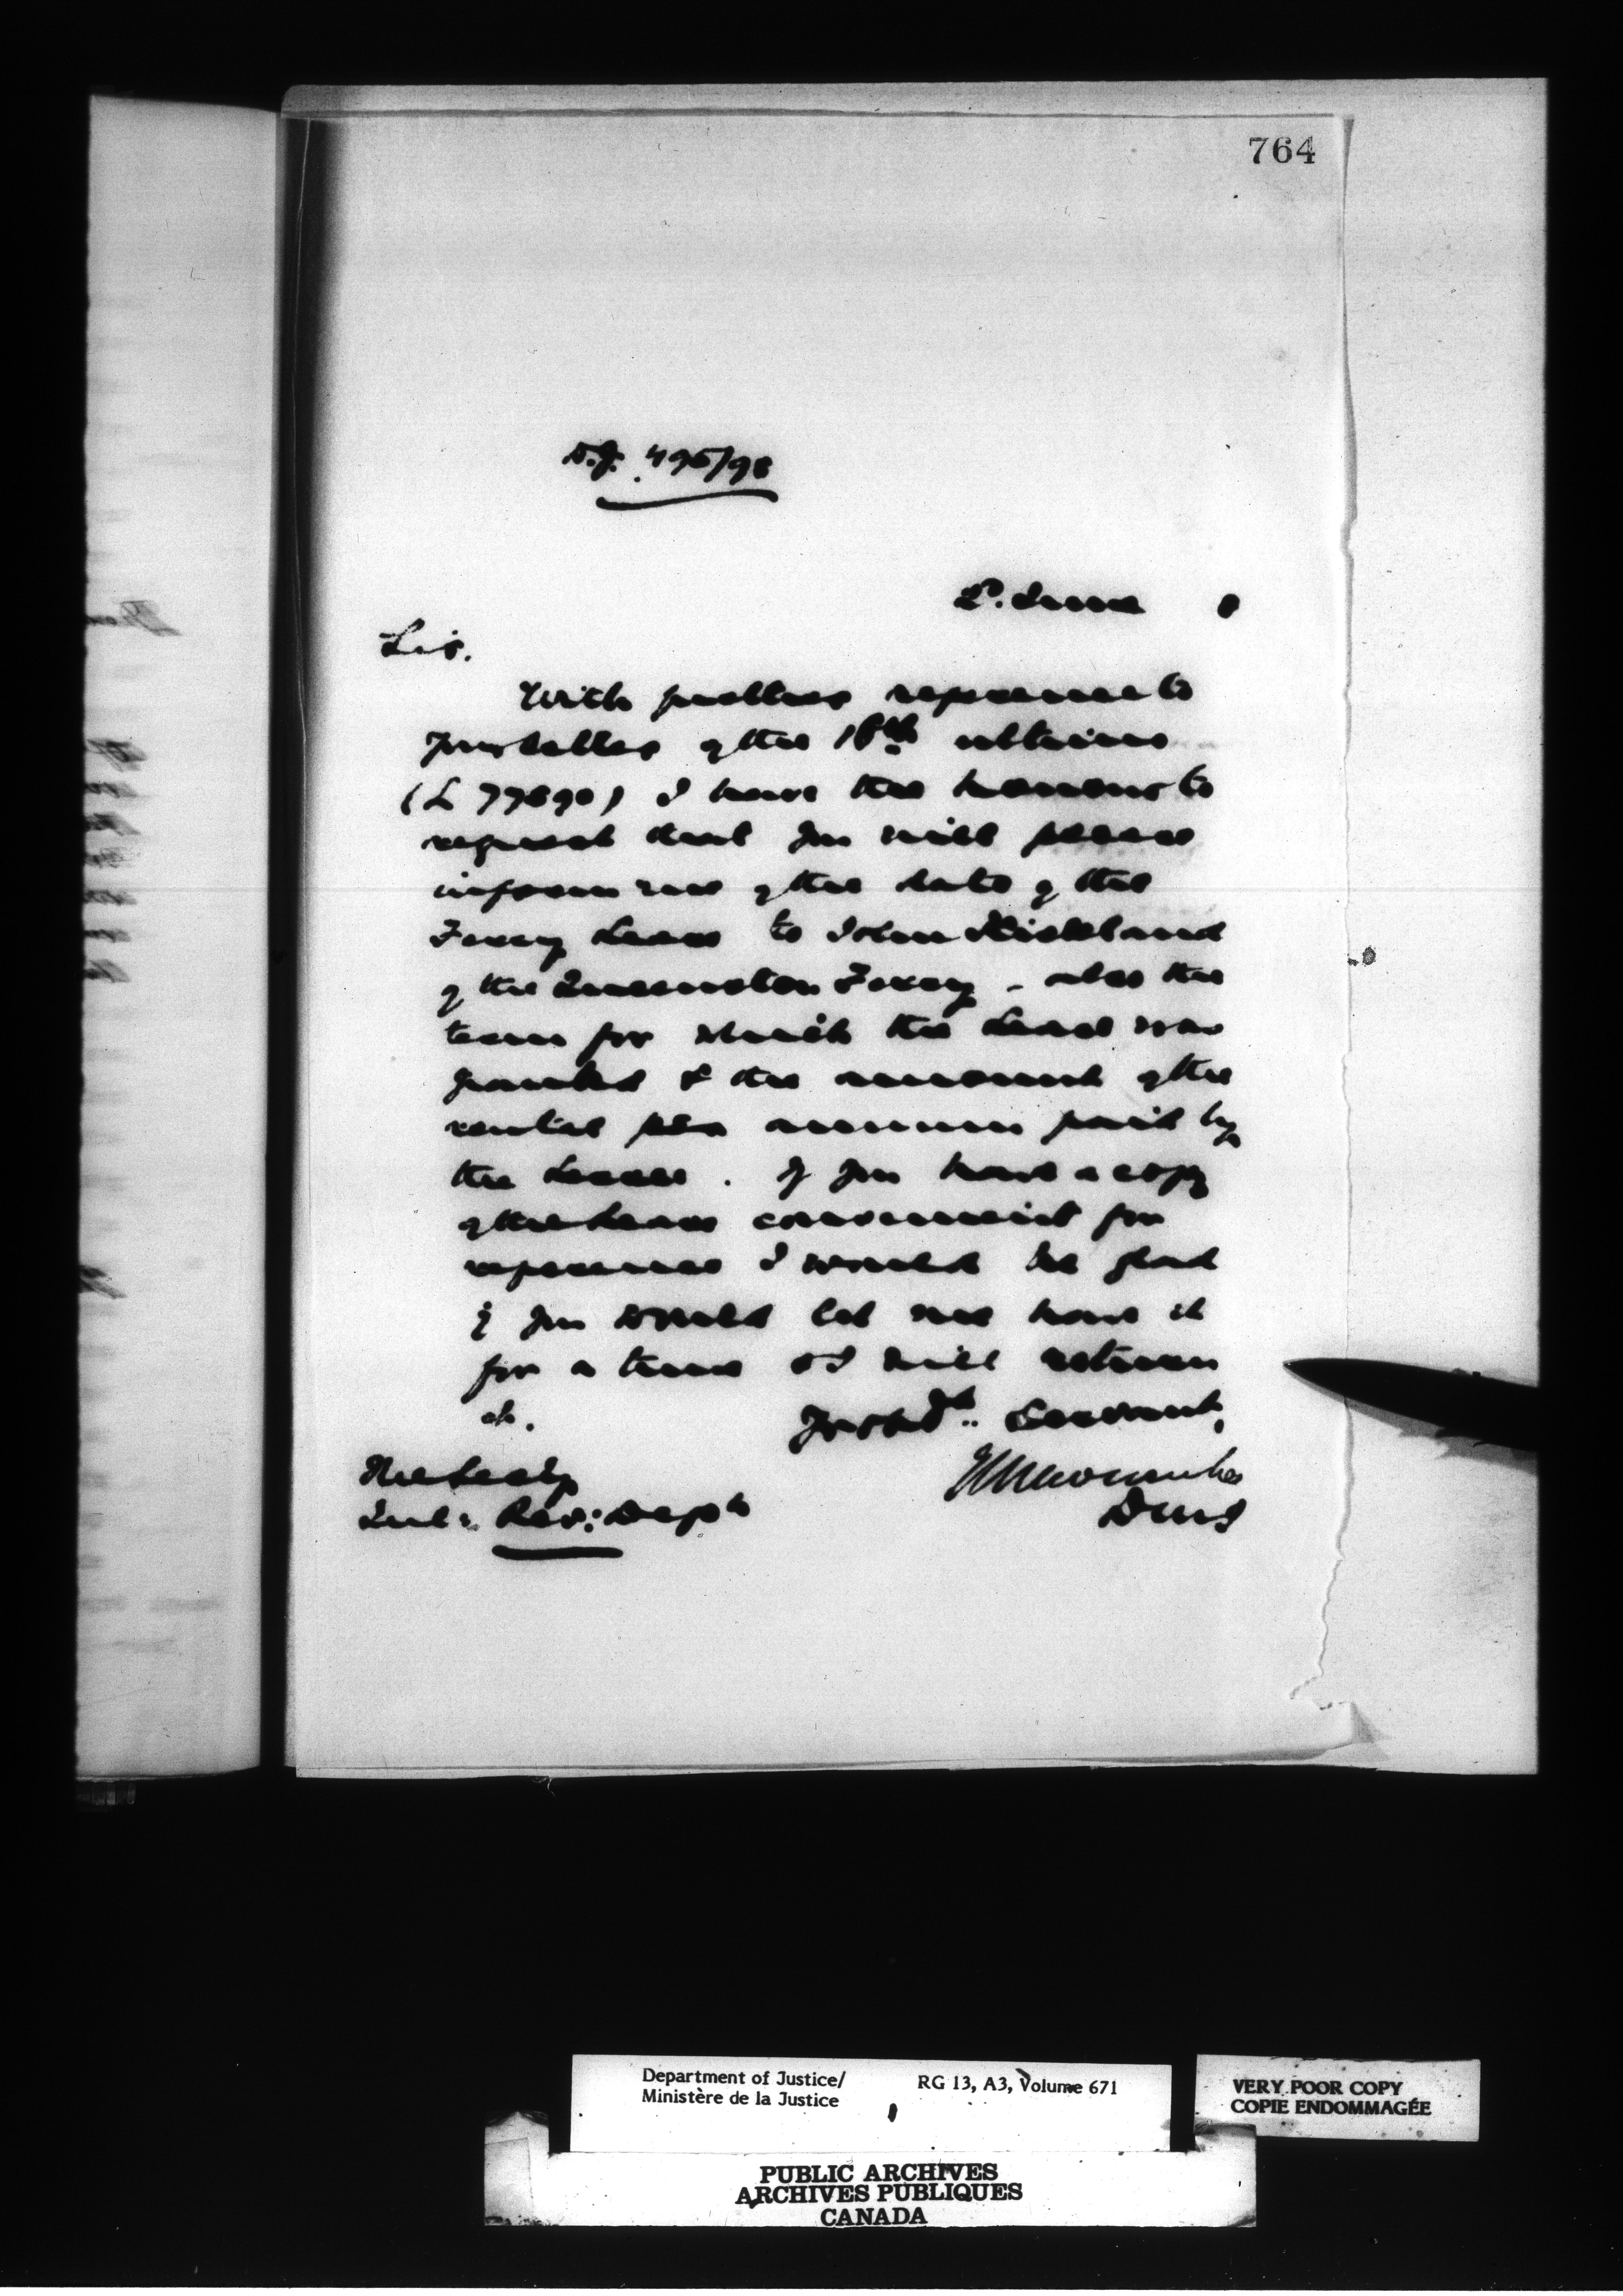 764
D.J. 495/98
2. June 8
Sir.
With further reference to
your letter of the 18th ultimo
(L 77890) I have the honour to
request that you will please
inform me of the date of the
Ferry Lease to John
of the Queenston Ferry - also the
term for which the Lease was
granted & the amount of the
rental per annum paid by
the Lessee. If you have a copy
of the Lease convenient for
reference I would be glad
if you would let me have it
for a time & I will return
it.
Yr obdt. Servant,
The Secty
Inl: Rev: Dept
Newcombe
DMJ
Department of Justice/
Ministère de la Justice
RG 13, A3, Volume 671
VERY POOR COPY
COPIE ENDOMMAGÉE
PUBLIC ARCHIVES
ARCHIVES PUBLIQUES
CANADA